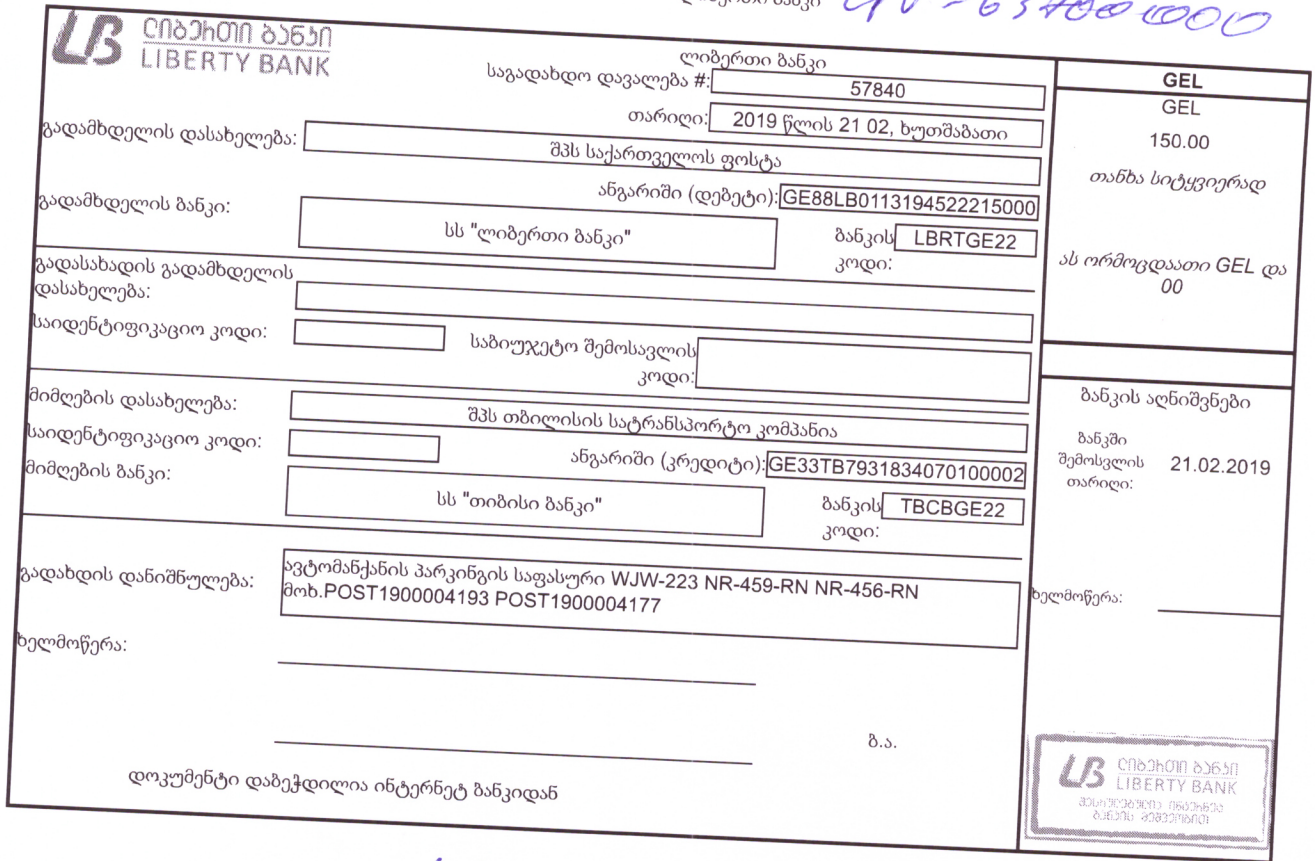 ლიბერთი ბანკი
LIBERTY BANK
ლიბერთი ბანკი
საგადახდო დავალება #: 57840
თარიღი: 2019 წლის 21 02, ხუთშაბათი
გადამხდელის დასახელება: შპს საქართველოს ფოსტა
ანგარიში (დებეტი): GE88LB0113194522215000
გადამხდელის ბანკი: სს "ლიბერთი ბანკი" ბანკის კოდი: LBRTGE22
გადასახადის გადამხდელის
დასახელება:
საიდენტიფიკაციო კოდი: საბიუჯეტო შემოსავლის
კოდი:
მიმღების დასახელება: შპს თბილისის სატრანსპორტო კომპანია
საიდენტიფიკაციო კოდი: ანგარიში (კრედიტი): GE33TB7931834070100002
მიმღების ბანკი: სს "თიბისი ბანკი" ბანკის კოდი: TBCBGE22
გადახდის დანიშნულება: ავტომანქანის პარკინგის საფასური WJW-223 NR-459-RN NR-456-RN
მოხ.POST1900004193 POST1900004177
ხელმოწერა:
ბ.ა.
დოკუმენტი დაბეჭდილია ინტერნეტ ბანკიდან
GEL
GEL
150.00
თანხა სიტყვიერად
ას ორმოცდაათი GEL და
00
ბანკის აღნიშვნები
ბანკში
შემოსვლის 21.02.2019
თარიღი:
ხელმოწერა:
ლიბერთი ბანკი
LIBERTY BANK
შესრულებულია ინტერნეტ
ბანკის მეშვეობით